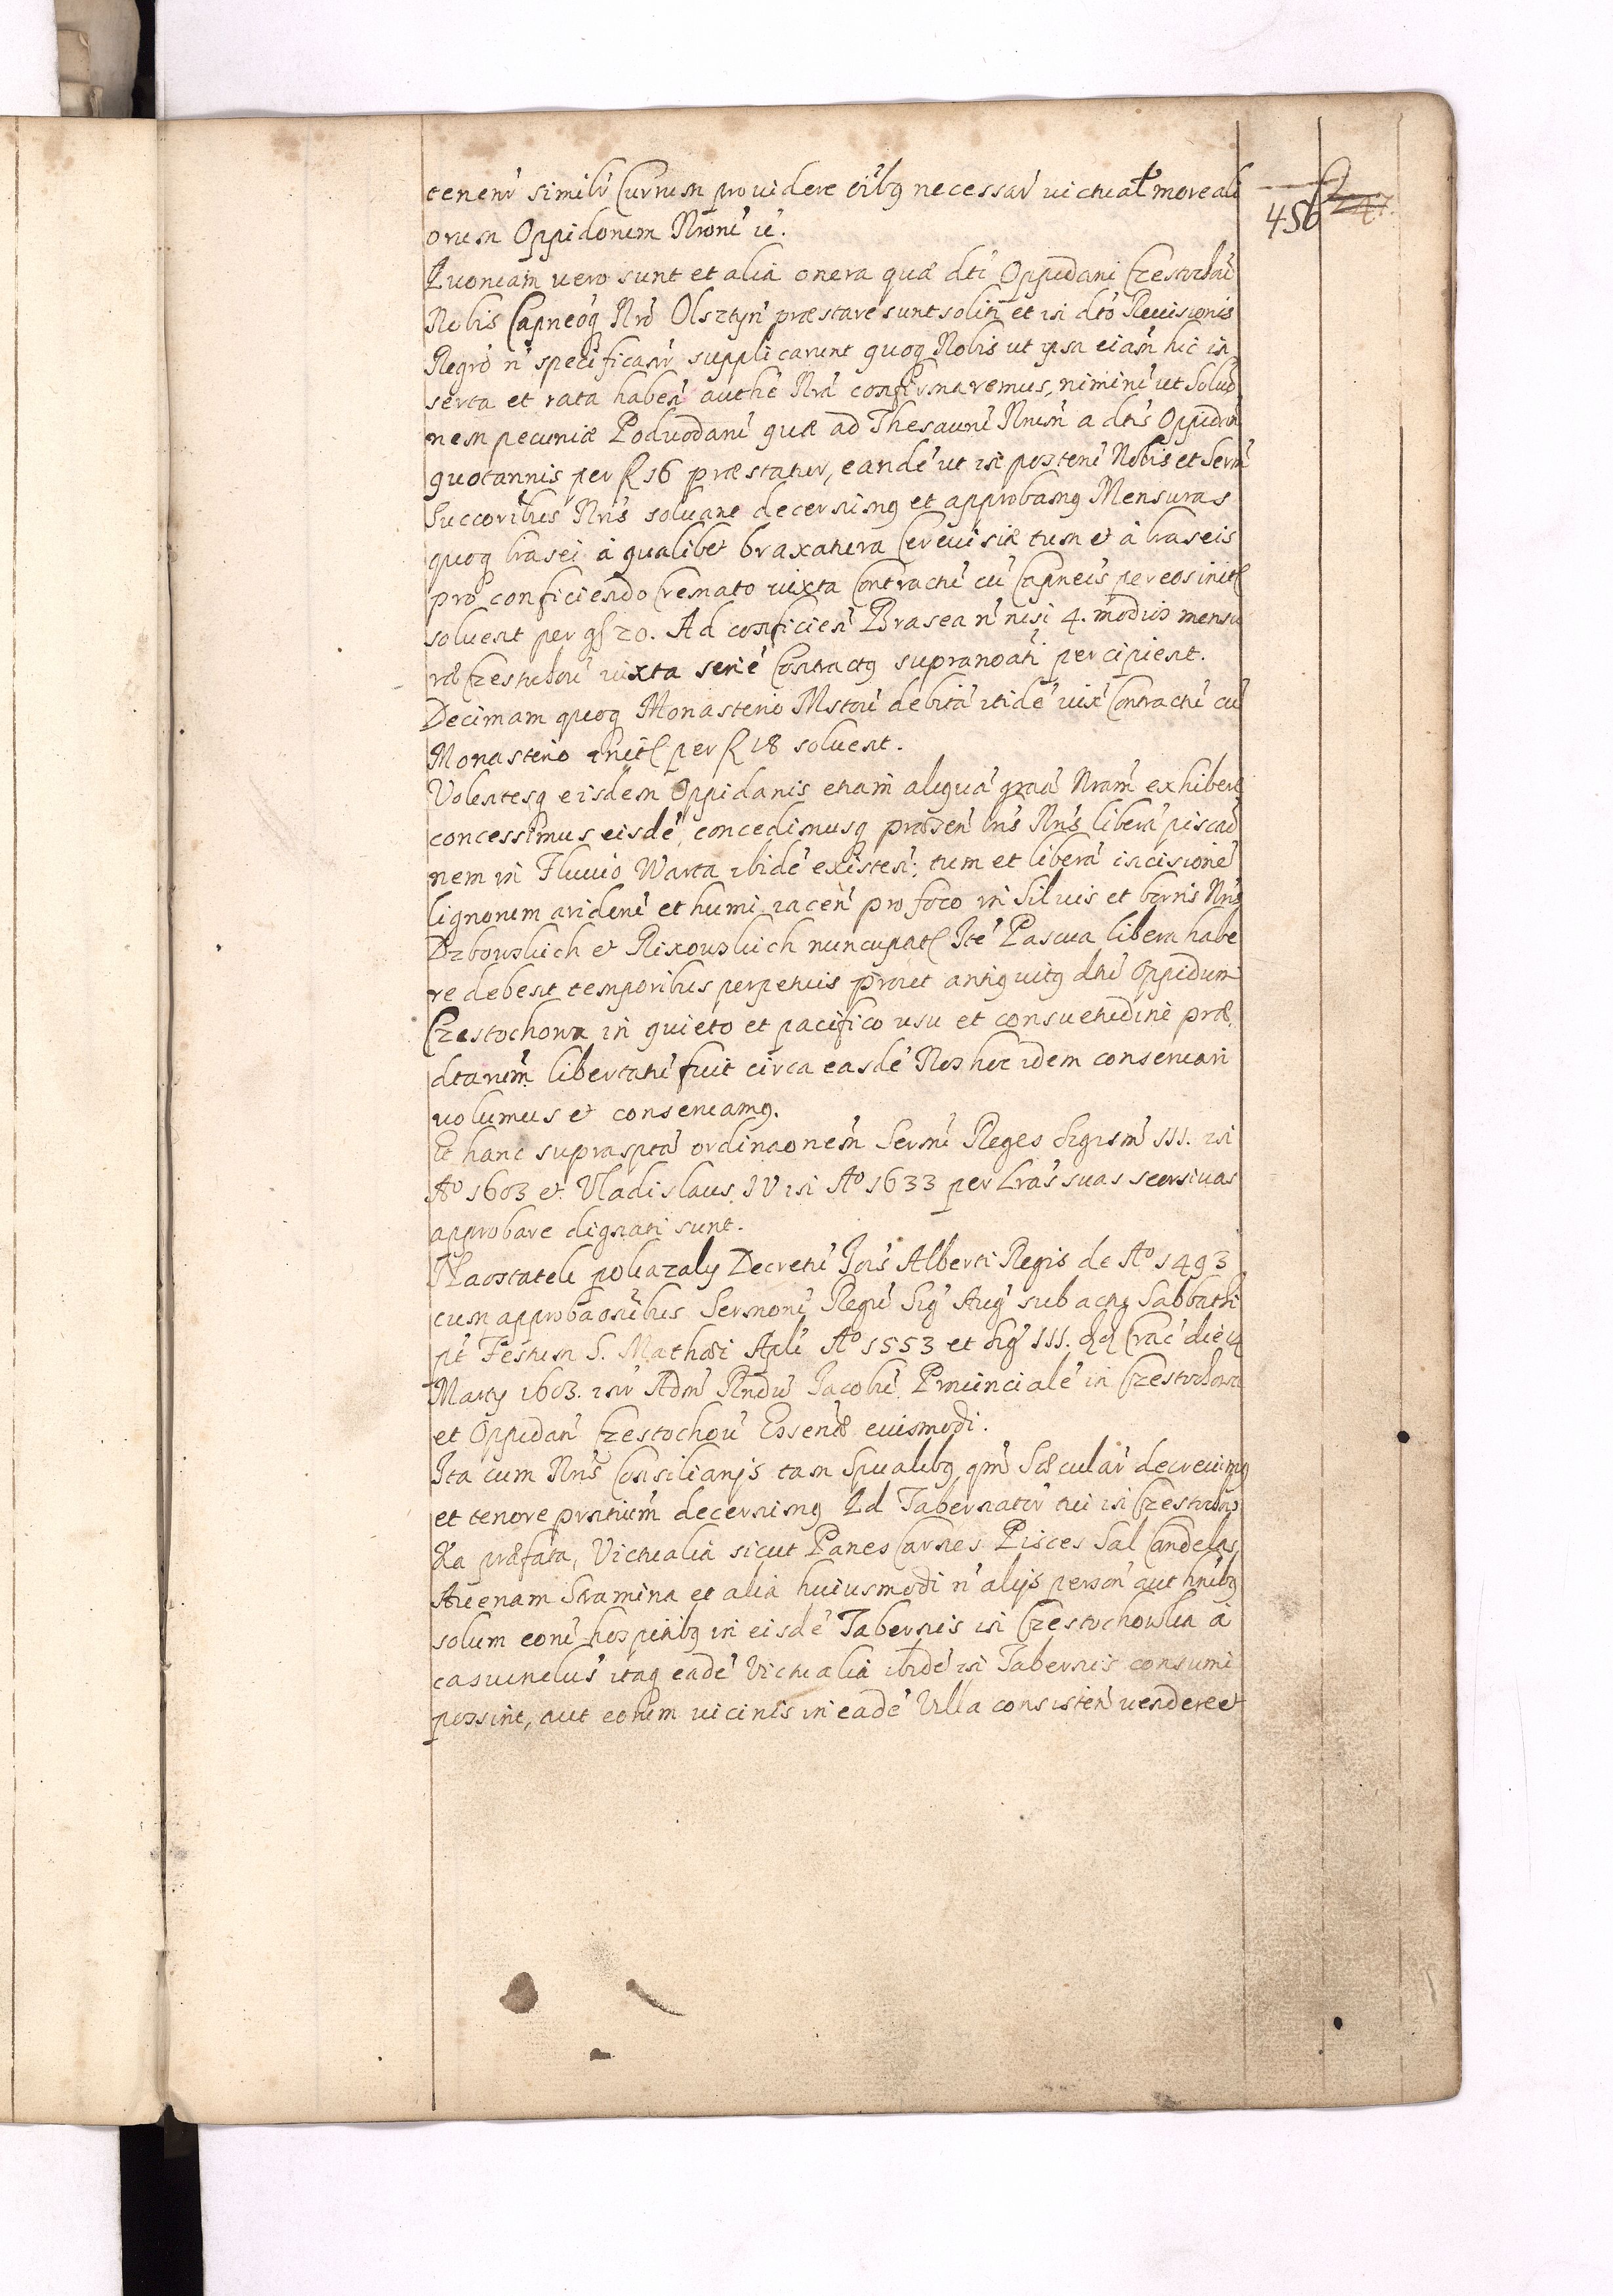 tenent̃r similr̃ Currum providere oĩbq necessar̃ victual more ali
orum Oppidorum Nroru͂ ie͂.
Quoniam vero sunt et alia onera quæ dti Oppidani Czestochov̄
Nobis Capneoq Nro Olsztyn̄ præstare sunt soliti et in dto Revisionis
Regro n̄ specificant̃r supplicarunt quoq Nobis ut ipsa eiam̄ hic in
serta et rata haben̄ authe Nrã confirmaremus, niminȗ ut Soluo
nem pecuniæ Podwodarȗ quæ ad Thesaurȗ Nrum̄ a dtis Oppidan̄
quotannis per fl 16 præstatur, eandē ut in posterȗ Nobis et Serm̄
Succoribus Nris soluant decernimq et approbamq Mensuras
quoq brasei à qualibet braxatura Cereuisiæ tum et à braseis
pro conficiendo Cremato iuxta Contractȗ cȗ Capneis per eos init
soluent per gs 20. Ad conficien̄ Brasea n̄ nisi 4. modios mensu
ræ Czestochov̄ iuxta seriē Contractq supranoati percipient.
Decimam quoq Monasterio Mstov̄ debitã itidē iux̄ Contractȗ cȗ
Monasterio init per fl 18 soluent.
Volentesq eisdem Oppidanis etiam aliquã graã Nram̄ exhibere
concessimus eisdē, concedimusq præsen̄ lris Nris liberã piscao
nem in Fluuio Warta ibidē existen̄; tum et liberã incisionē
lignorum aridorȗ et humi iacen̄ pro foco in Siluis et borris Nris
Dzbowskich et Rixowskich nuncupat Itē Pascua libera habe
re debent temporibus perpetuis prout antiquitq dtȗ Oppidum
Czestochowa in quieto et pacifico usu et consuetudine præ
dtarum̄ libertatȗ fuit circa easdē Nos hoc idem conseruari
volumus et conseruamq.
Et hanc suprasptã ordinaonem̄ Sermi Reges Sigism̄ III. in
Aº 1603 et Vladislaus IV in Aº 1633 per Lras suas seorsiuas
approbare dignati sunt.
Naostatek pokazaly Decretȗ Jois Alberti Regis de Aº 1493
cum approbaonibus Sermorȗ Regȗ Sig Aug sub actq Sabbathi
pt̄ Festum S. Mathæi Apli Aº 1553 et Sig III. dd Crac̄ die 4
Martij 1603. intr̄ Adm̄ Rndȗ Jacobȗ Prouincialē in Czestochowa
et Oppidan̄ Czestochov̄ Essentiæ eiusmodi.
Ita cum Nris Consiliarijs tam Spualibq qm̄ Sæcular̄ decreuimq
et tenore prntium̄ decernimq Qd Tabernator̄ tui in Czestochow
ka præfata, Victualia sicut Panes Carnes Pisces Sal Candelas,
Auenam Stramina et alia huiusmodi n̄ alijs person̄ aut hoibq
solum eorȗ hospitibq in eisdē Tabernis in Czestochowka à
casu itaq eadē Victualia ibidē in Tabernis consumi
possint, aut eorum vicinis in eadē Villa consisten̄ vendere et
456
247.